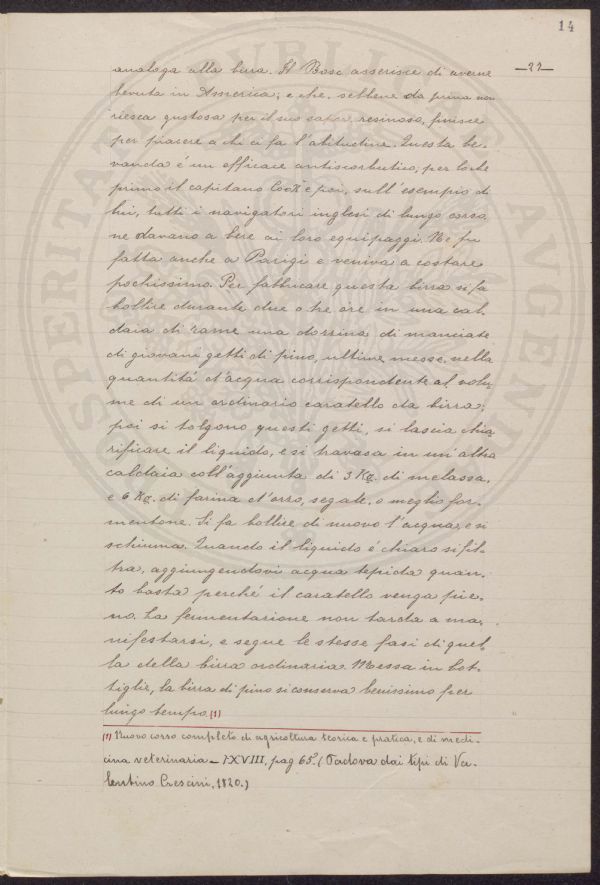 14
—22—
analoga alla birra. Il Bosc asserisce di averne
bevuta in America; e che, sebbene da prima non
riesca gustosa per il suo sapor resinoso, finisce
per piacere a chi ci fa l'abitudine. Questa be-
vanda é un efficace antiscorbutico; per loche
primo il capitano Cook e poi, sull'esempio di
lui, tutti i navigatori inglesi di lungo corso,
ne davano a bere ai loro equipaggi. Ne fu
fatta anche a Parigi e veniva a costare
pochissimo. Per fabbricare questa birra si fa
bollire durante due o tre ore in una cal-
daia di rame una dozzina di manciate
di giovani getti di pino, ultime messe, nella
quantitá d'acqua corrispondente al volu-
me di un ordinario caratello da birra;
poi si tolgono questi getti, si lascia chia-
rificare il liquido, e si travasa in un'altra
caldaia coll'aggiunta di 3 Kg. di melassa,
e 6 Kg. di farina d'orzo, segale, o meglio for-
mentone. Si fa bollire di nuovo l'acqua e si
schiuma. Quando il liquido é chiaro si fil-
tra, aggiungendovi acqua tepida quan-
to basta perché il caratello venga pie-
no. La fermentazione non tarda a ma-
nifestarsi, e segue le stesse fasi di quel-
la della birra ordinaria. Messa in bot-
tiglie, la birra di pino si conserva benissimo per
lungo tempo. (1)
(1) Nuovo corso completo di agricoltura teorica e pratica, e di medi-
cina veterinaria – XVIII, pag 65. (Padova dai tipi di Va-
lentino Crescini, 1820.)
PUBLICAE
AUGENDAE
PROSPERITATI